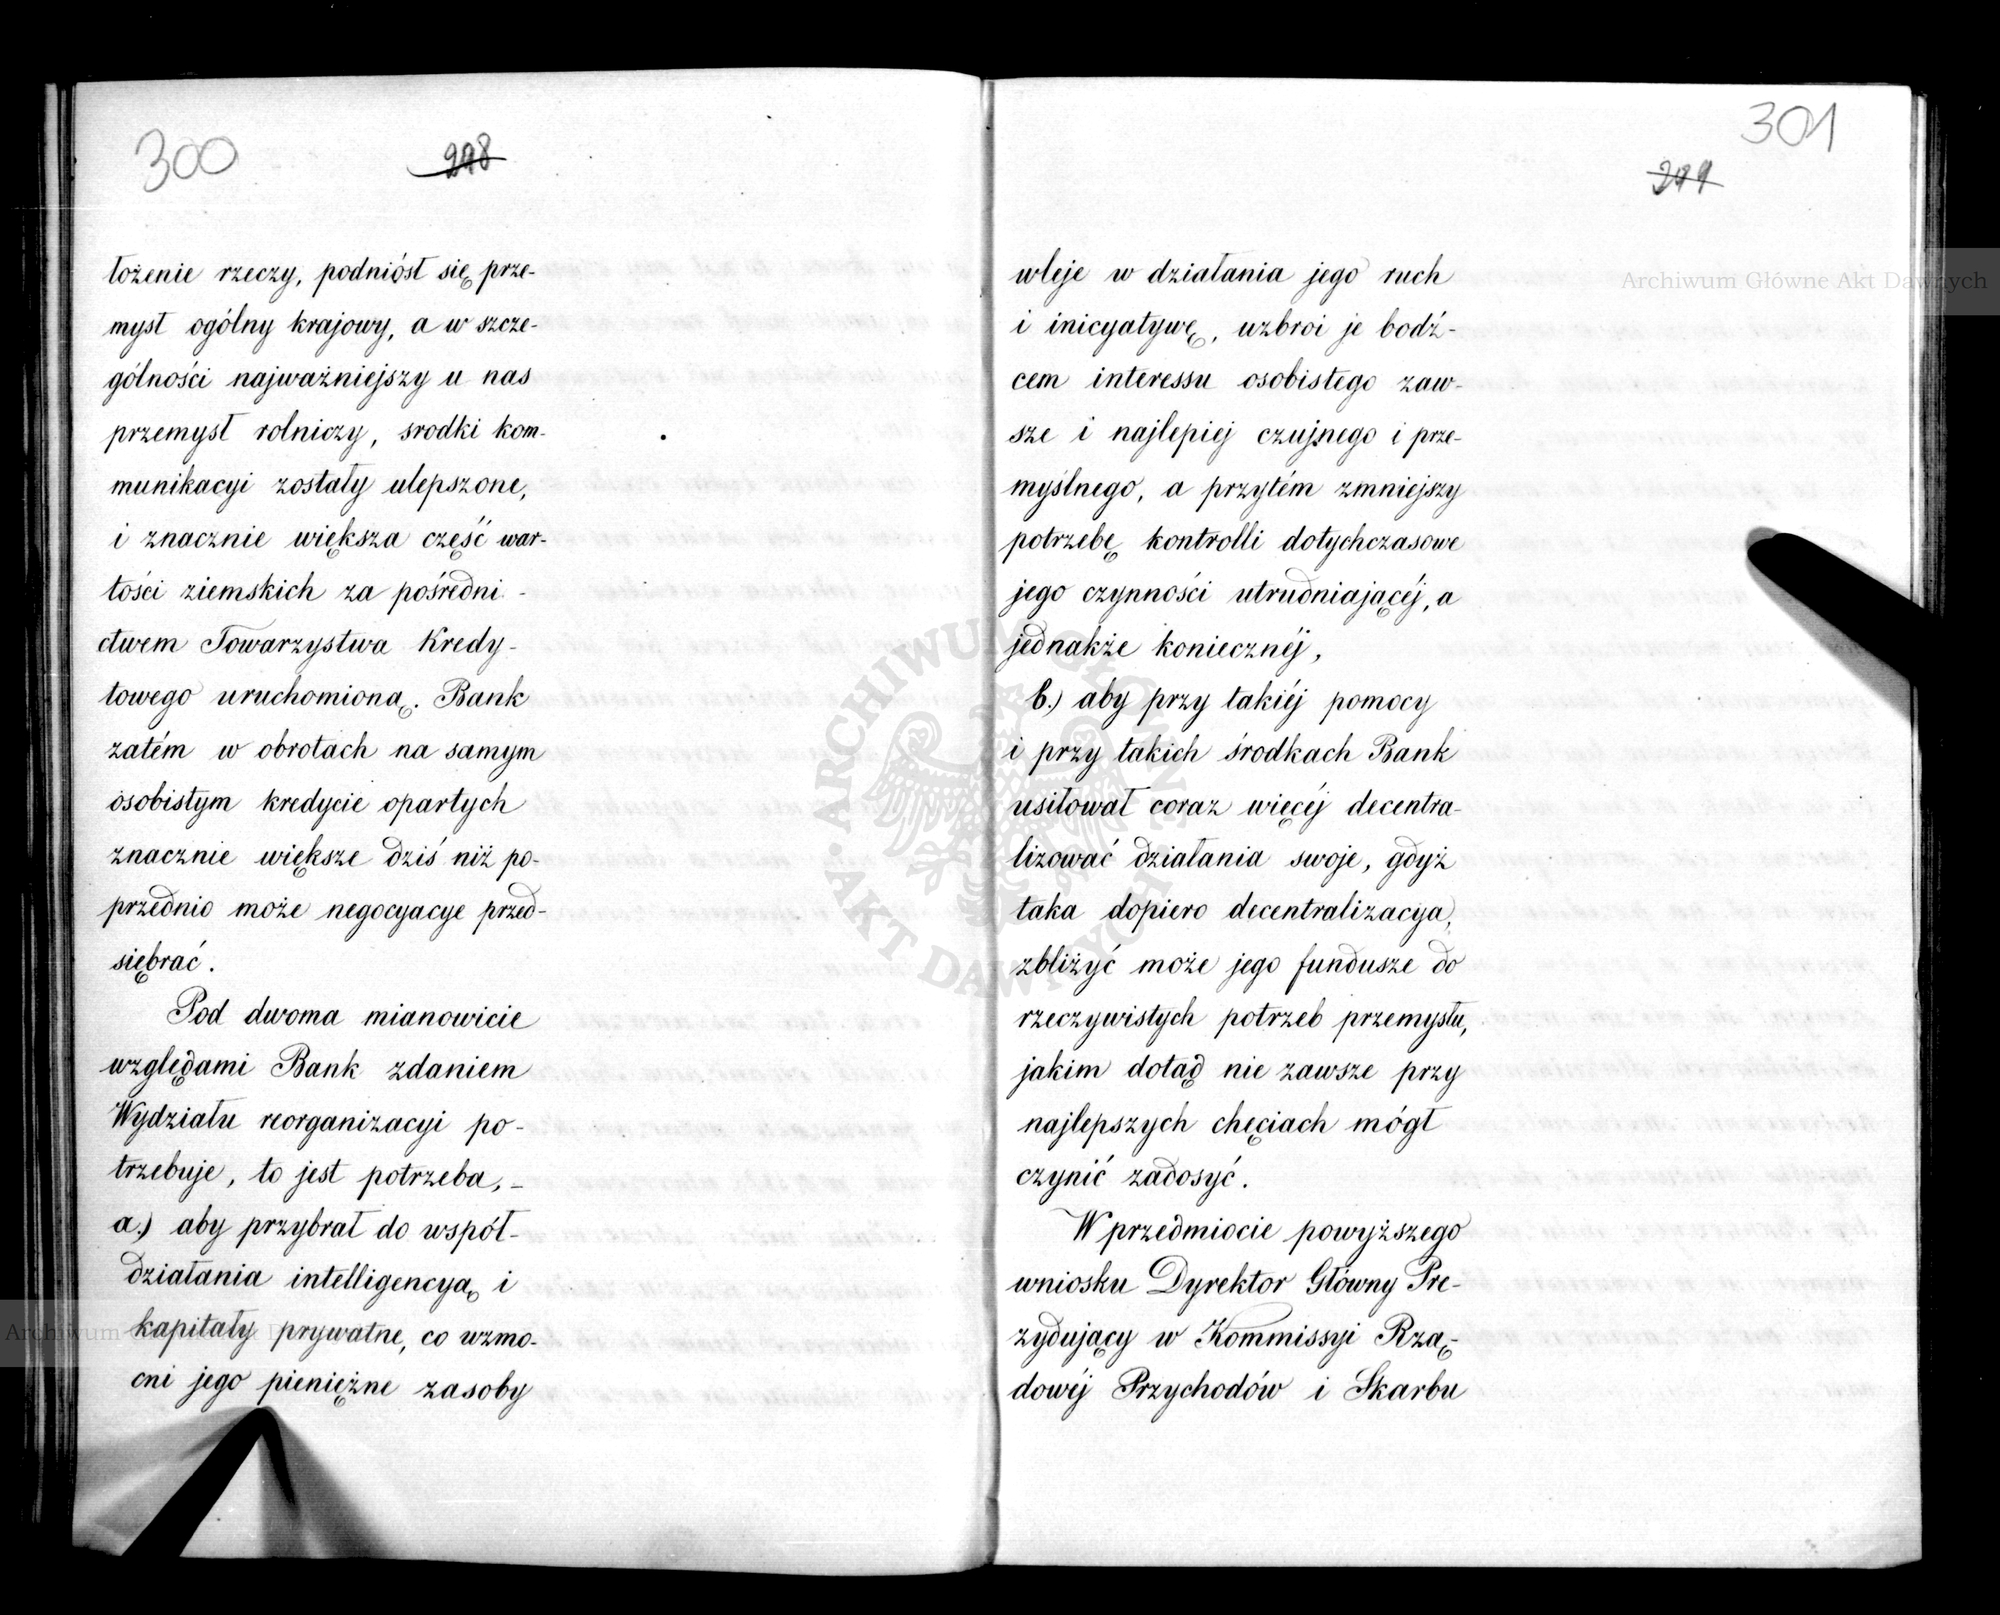 300
298
łożenie rzeczy, podniósł się prze-
mysł ogólny krajowy, a w szcze-
gólności najważniejszy u nas
przemysł rolniczy, srodki kom-
munikacyi zostały ulepszone,
i znacznie większa część war-
tości ziemskich za pośredni-
ctwem Towarzystwa Kredy-
towego uruchomioną. Bank
zatém w obrotach na samym
osobistym kredycie opartych
znacznie większe dziś niż po-
przednio może negocyacye przed-
siębrać.
Pod dwoma mianowicie
względami Bank zdaniem
Wydziału reorganizacyi po-
trzebuje, to jest potrzeba, –
a.) aby przybrał do współ-
działania intelligencyą i
kapitały prywatne, co wzmo-
cni jego pieniężne zasoby
301
299
wleje w działania jego ruch
i inicyatywę, uzbroi je bodź-
cem interessu osobistego zaw-
sze i najlepiej czujnego i prze-
myślnego, a przytém zmniejszy
potrzebę kontrolli dotychczasowe
jego czynności utrudniającéj, a
jednakże koniecznéj,
b.) aby przy takiéj pomocy
i przy takich środkach Bank
usiłował coraz więcéj decentra-
lizować działania swoje, gdyż
taka dopiero decentralizacya,
zbliżyć może jego fundusze do
rzeczywistych potrzeb przemysłu,
jakim dotąd nie zawsze przy
najlepszych chęciach mógł
czynić zadosyć.
W przedmiocie powyższego
wniosku Dyrektor Główny Pre-
zydujący w Kommissyi Rzą-
dowéj Przychodów i Skarbu
Archiwum Główne Akt Dawnych
ARCHIWUM GŁÓWNE AKT DAWNYCH